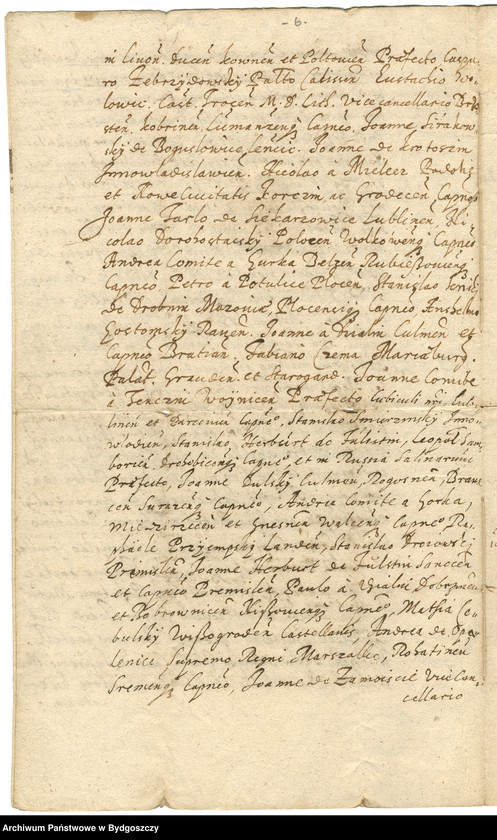 - 6 -
in Livon. Ducen̄ Kownen̄ et Poltovien̄ Præfecto
ro Zebrzydowsky Palto Calissien̄ Eustachio Wo-
lowic. Cast. Trocen̄ M. D. Lith. Vicecancellario Brze
sten̄. Kobrinen̄. Capnēo. Joanne Sirakow-
sky de Boguslowice Lencic. Joanne de Krotoszin
Innowladislavien̄. Nicolao a Mielecz
et Novæ Civitatis Korczin ac Grodecen̄ Capnēo
Joanne Tarlo de Siekarzowice Lublinen̄. Ni-
colao Dorohostaisky Polocen̄ Wolkowen̄ Capnēo
Andrea Comite a Gurka Belzen̄. Capnēo
Capnēo Petro à Potulice Plocen̄, Stanislao
de Drobnin Mazoviæ, Plocensiq Capnēo, Anselmo
Gostomsky Raven̄. Joanne à Dzialin Culmen̄ et
Capnēo Bratian. Fabiano Czema Mariæburg.
Palat. Grauden̄. et Starogard. Joanne Comite
à Tenczin Woynicen̄ Præfecto Cubiculi nr̄i Lub-
linen̄ et Parcovien̄ Capnēo, Stanislao Inno-
wlodien̄, Stanislao Herburt de Fulstin, Leopol Sam-
borien̄. Drohobicen̄ Capnēo et in Russia Salinarum
Præfecto, Joanne Dulsky Culmen̄, Rogosnen̄, Brans
cen Surazen̄ Capnēo, Andrea Comite a Gorka,
Miedzirzecen̄ et Gnesnen̄ Walcen̄ Capnēo Ra-
phaele Przyempsky Landen̄, Stanislao Drozowsky
Premislen̄, Joanne Herburt de Fulstin Sanocen̄
et Capnēo Premislen̄, Paulo à Dzialin Dobrznen̄
et Bobrownicen̄ Capnēo, Mathia Ce-
bulsky Wissogroden̄ Castellanis, Andrea de Opa-
lenice, Supremo Regni Marszallo, Rohatinen̄
Sremen̄q Capnēo, Joanne de Zamoiscie Vicecan-
cellario
Archiwum Państwowe w Bydgoszczy